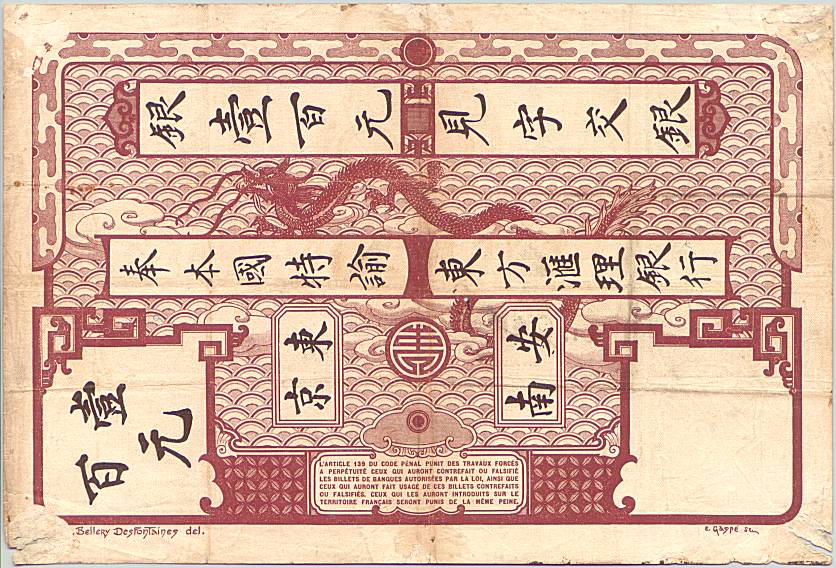 銀壹百元
見字交銀
奉本國特諭
東方滙理銀行
東京
安南
壹百元
L'ARTICLE 139 DU CODE PÉNAL PUNIT DES TRAVAUX FORCÉS
A PERPÉTUITÉ CEUX QUI AURONT CONTREFAIT OU FALSIFIÉ
LES BILLETS DE BANQUES AUTORISÉES PAR LA LOI, AINSI QUE
CEUX QUI AURONT FAIT USAGE DE CES BILLETS CONTREFAITS
OU FALSIFIÉS. CEUX QUI LES AURONT INTRODUITS SUR LE
TERRITOIRE FRANÇAIS SERONT PUNIS DE LA MÊME PEINE.
Bellery Desfontaines del.
E. Gaspé sc.